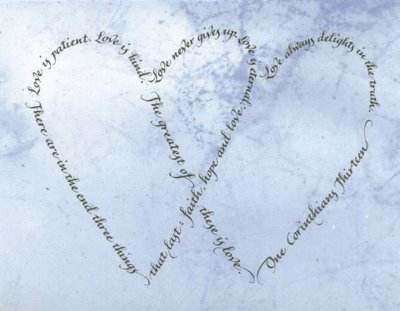 Love is patient. Love is kind.
Love never gives up, love is eternal.
Love always delights in the truth.
There are in the end three things
that last: faith, hope and love;
The greatest of
these is love.
One Corinthians Thirteen